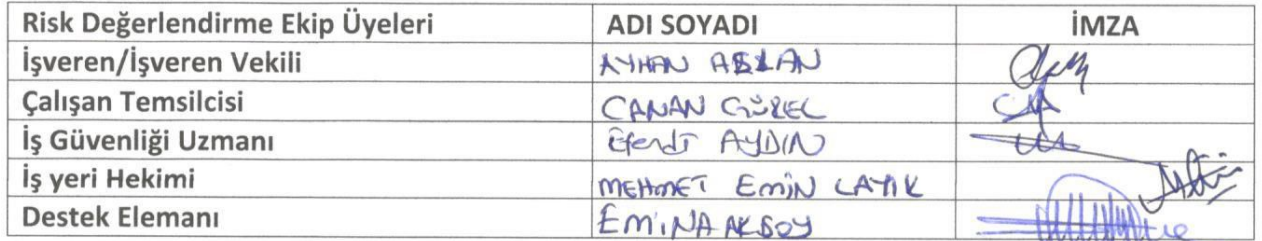 Risk Değerlendirme Ekip Üyeleri ADI SOYADI İMZA
İşveren/İşveren Vekili AYHAN ASLAN
Çalışan Temsilcisi CANAN GÜREL
İş Güvenliği Uzmanı Efendi AYDIN
İş yeri Hekimi MEHMET EMİN LAYIK
Destek Elemanı EMİNA AKSOY